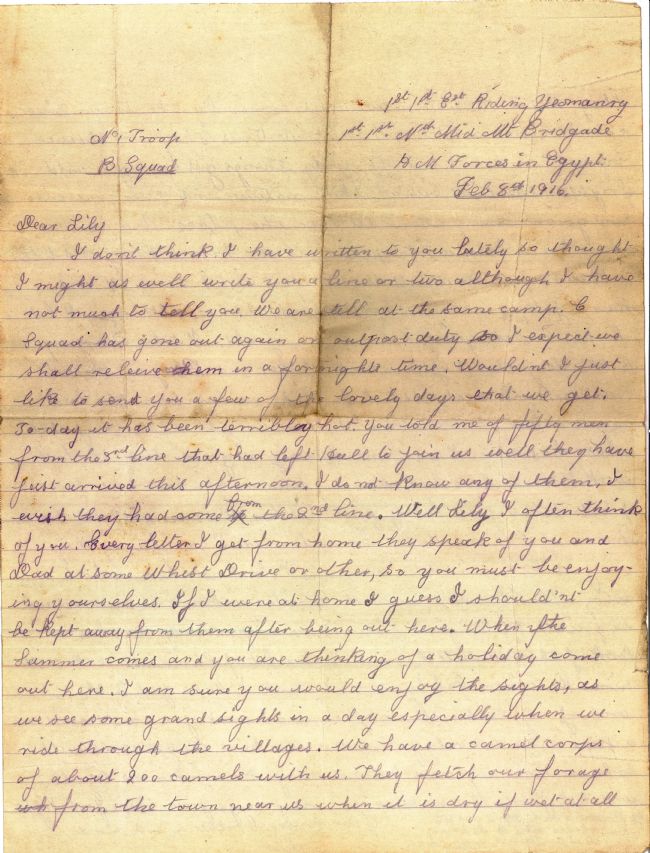 1st 1st Est Riding Yeomanry
No 1 Troop
1st 1st Nth Mid Mt Bridgade
B Squad
H M Forces in Egypt
Feb 8th 1916.
Dear Lily
I don't think I have written to you lately so thought
I might as well write you a line or two although I have
not much to tell you. We are still at the same camp. C
Squad has gone out again on outpost duty so I expect we
shall releive them in a fortnights time. Wouldnt I just
like to send you a few of the lovely days that we get.
To-day it has been terribley hot. You told me of fifty men
from the 3rd line that had left Hull to join us well they have
just arrived this afternoon. I do not know any of them, I
wish they had come from the 2nd line. Well Lily I often think
of you. Every letter I get from home they speak of you and
Dad at some Whist Drive or other, so you must be enjoy-
ing yourselves. If I were at home I guess I should'nt
be kept away from them after being out here. When the
Summer comes and you are thinking of a holiday come
out here. I am sure you would enjoy the sights, as
we see some grand sights in a day especially when we
ride through the villages. We have a camel corps
of about 200 camels with us. They fetch our forage
from the town near us when it is dry if wet at all